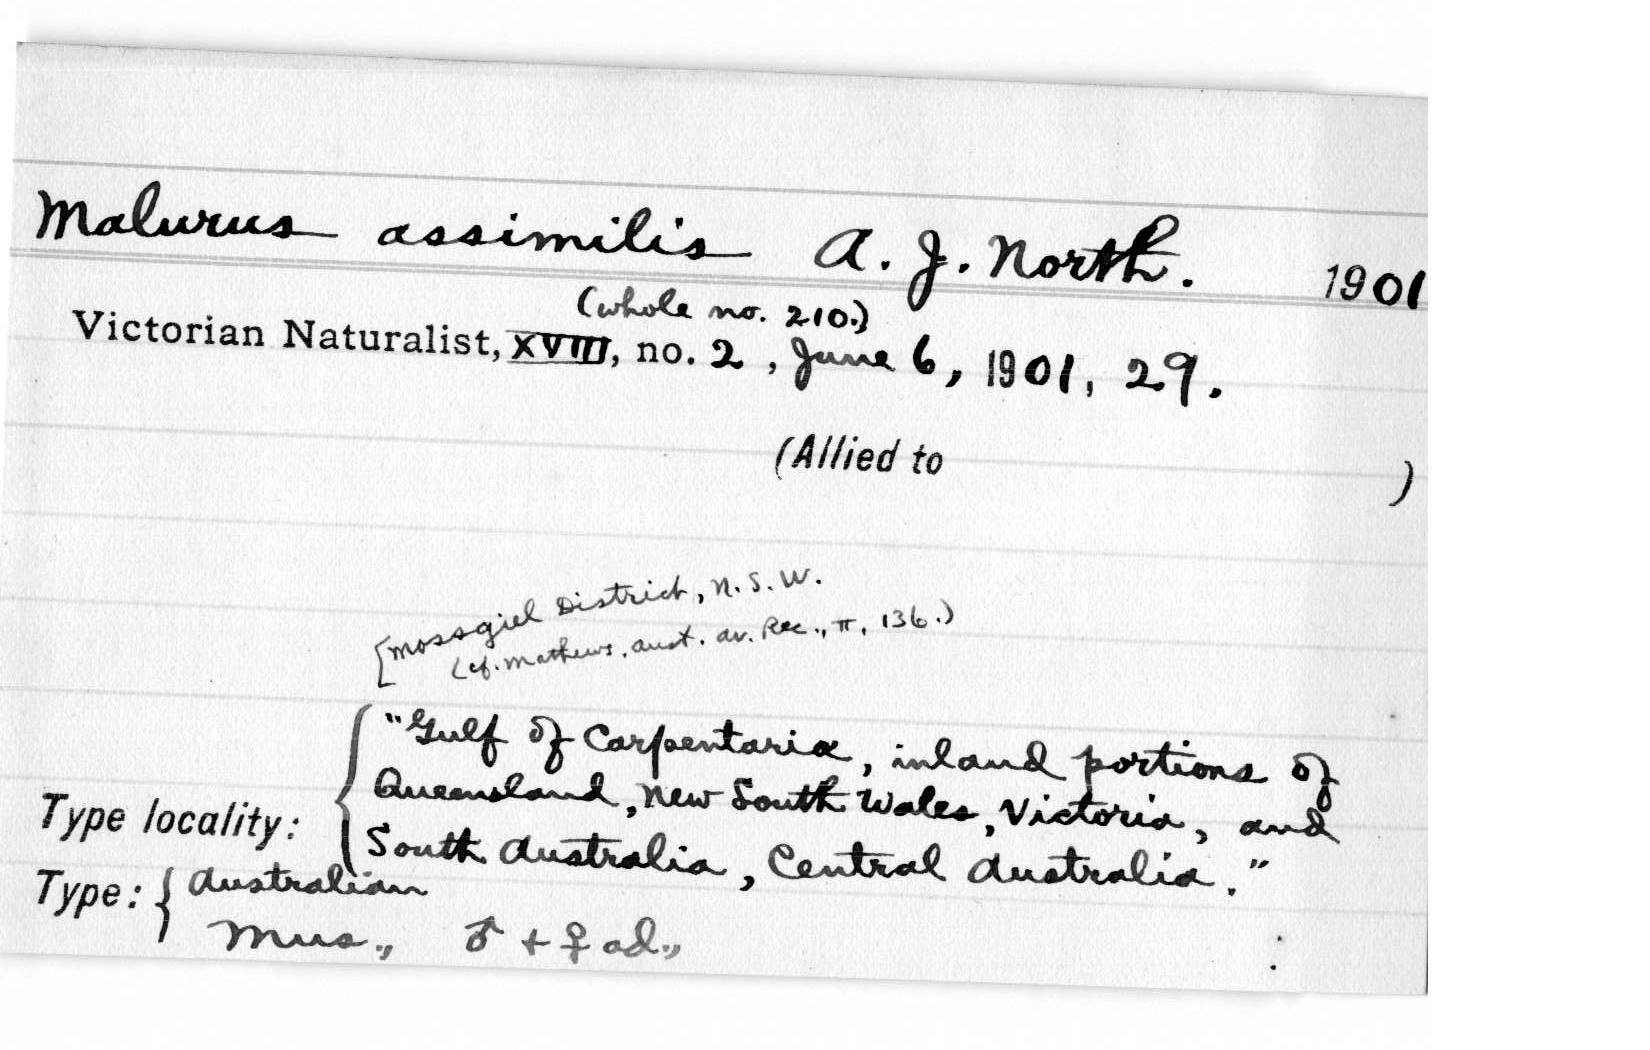 Malurus assimilis A. J. North. 1901
(whole no. 210.)
Victorian Naturalist, XVIII, no. 2, June 6, 1901, 29.
(Allied to )
[Mossgiel District, N. S. W.
(cf. Mathews, Aust. Av. Rec., II, 136.)
"Gulf of Carpentaria, inland portions of
Queensland, New South Wales, Victoria, and
Type locality: South Australia, Central Australia."
Type: { Australian
Mus., ♂ + ♀ ad.,